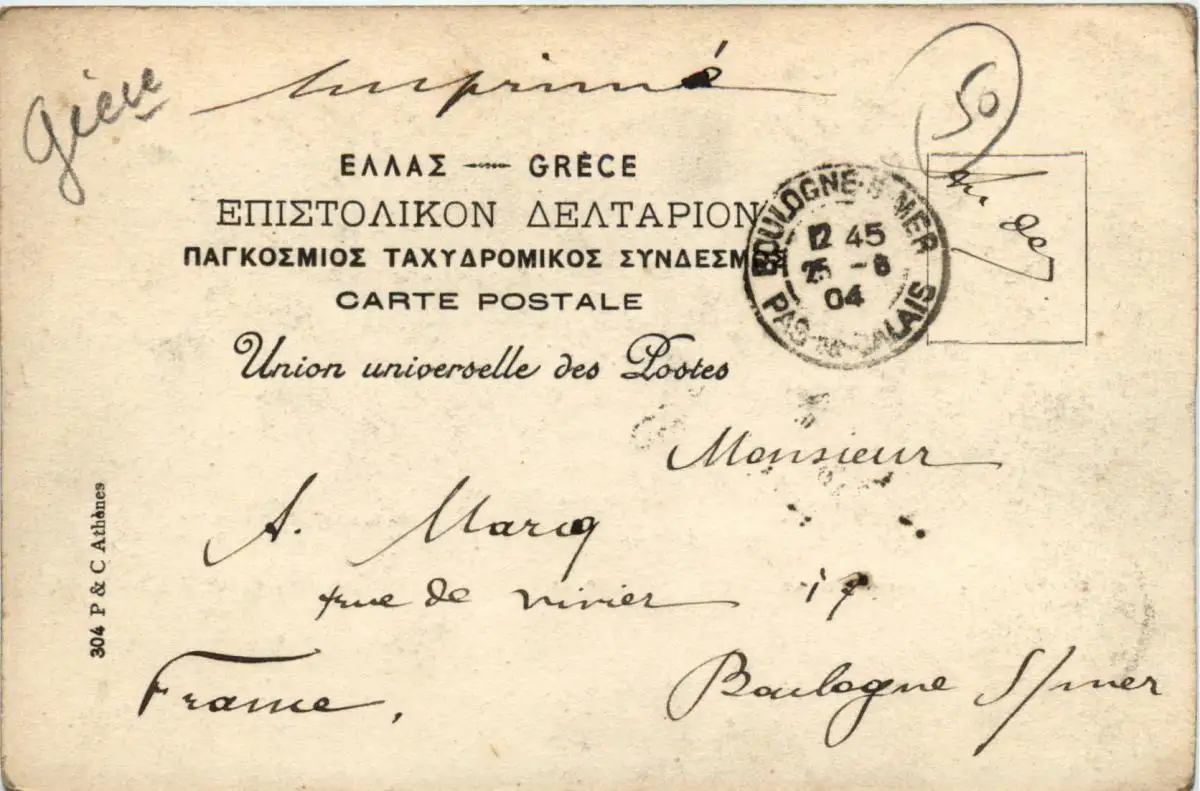 Imprimé
Grèce
50
ΕΛΛΑΣ — GRÈCE
ΕΠΙΣΤΟΛΙΚΟΝ ΔΕΛΤΑΡΙΟΝ
ΠΑΓΚΟΣΜΙΟΣ ΤΑΧΥΔΡΟΜΙΚΟΣ ΣΥΝΔΕΣΜΟΣ
CARTE POSTALE
Union universelle des Postes
BOULOGNE-S-MER
12 45
25 -6
04
PAS-DE-CALAIS
Monsieur
A. Marcq
rue de vivier 17
France, Boulogne S/mer
304 P & C Athènes